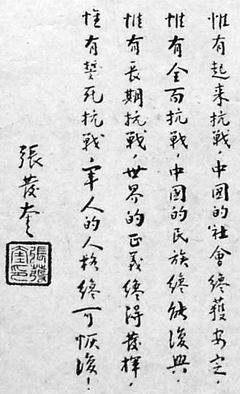 惟有起来抗戰，中國的社會終獲安定，
惟有全面抗戰，中國的民族終能復興，
惟有長期抗戰，世界的正義終得發揮，
惟有誓死抗戰，軍人的人格終可恢復！
張發奎
張發奎印